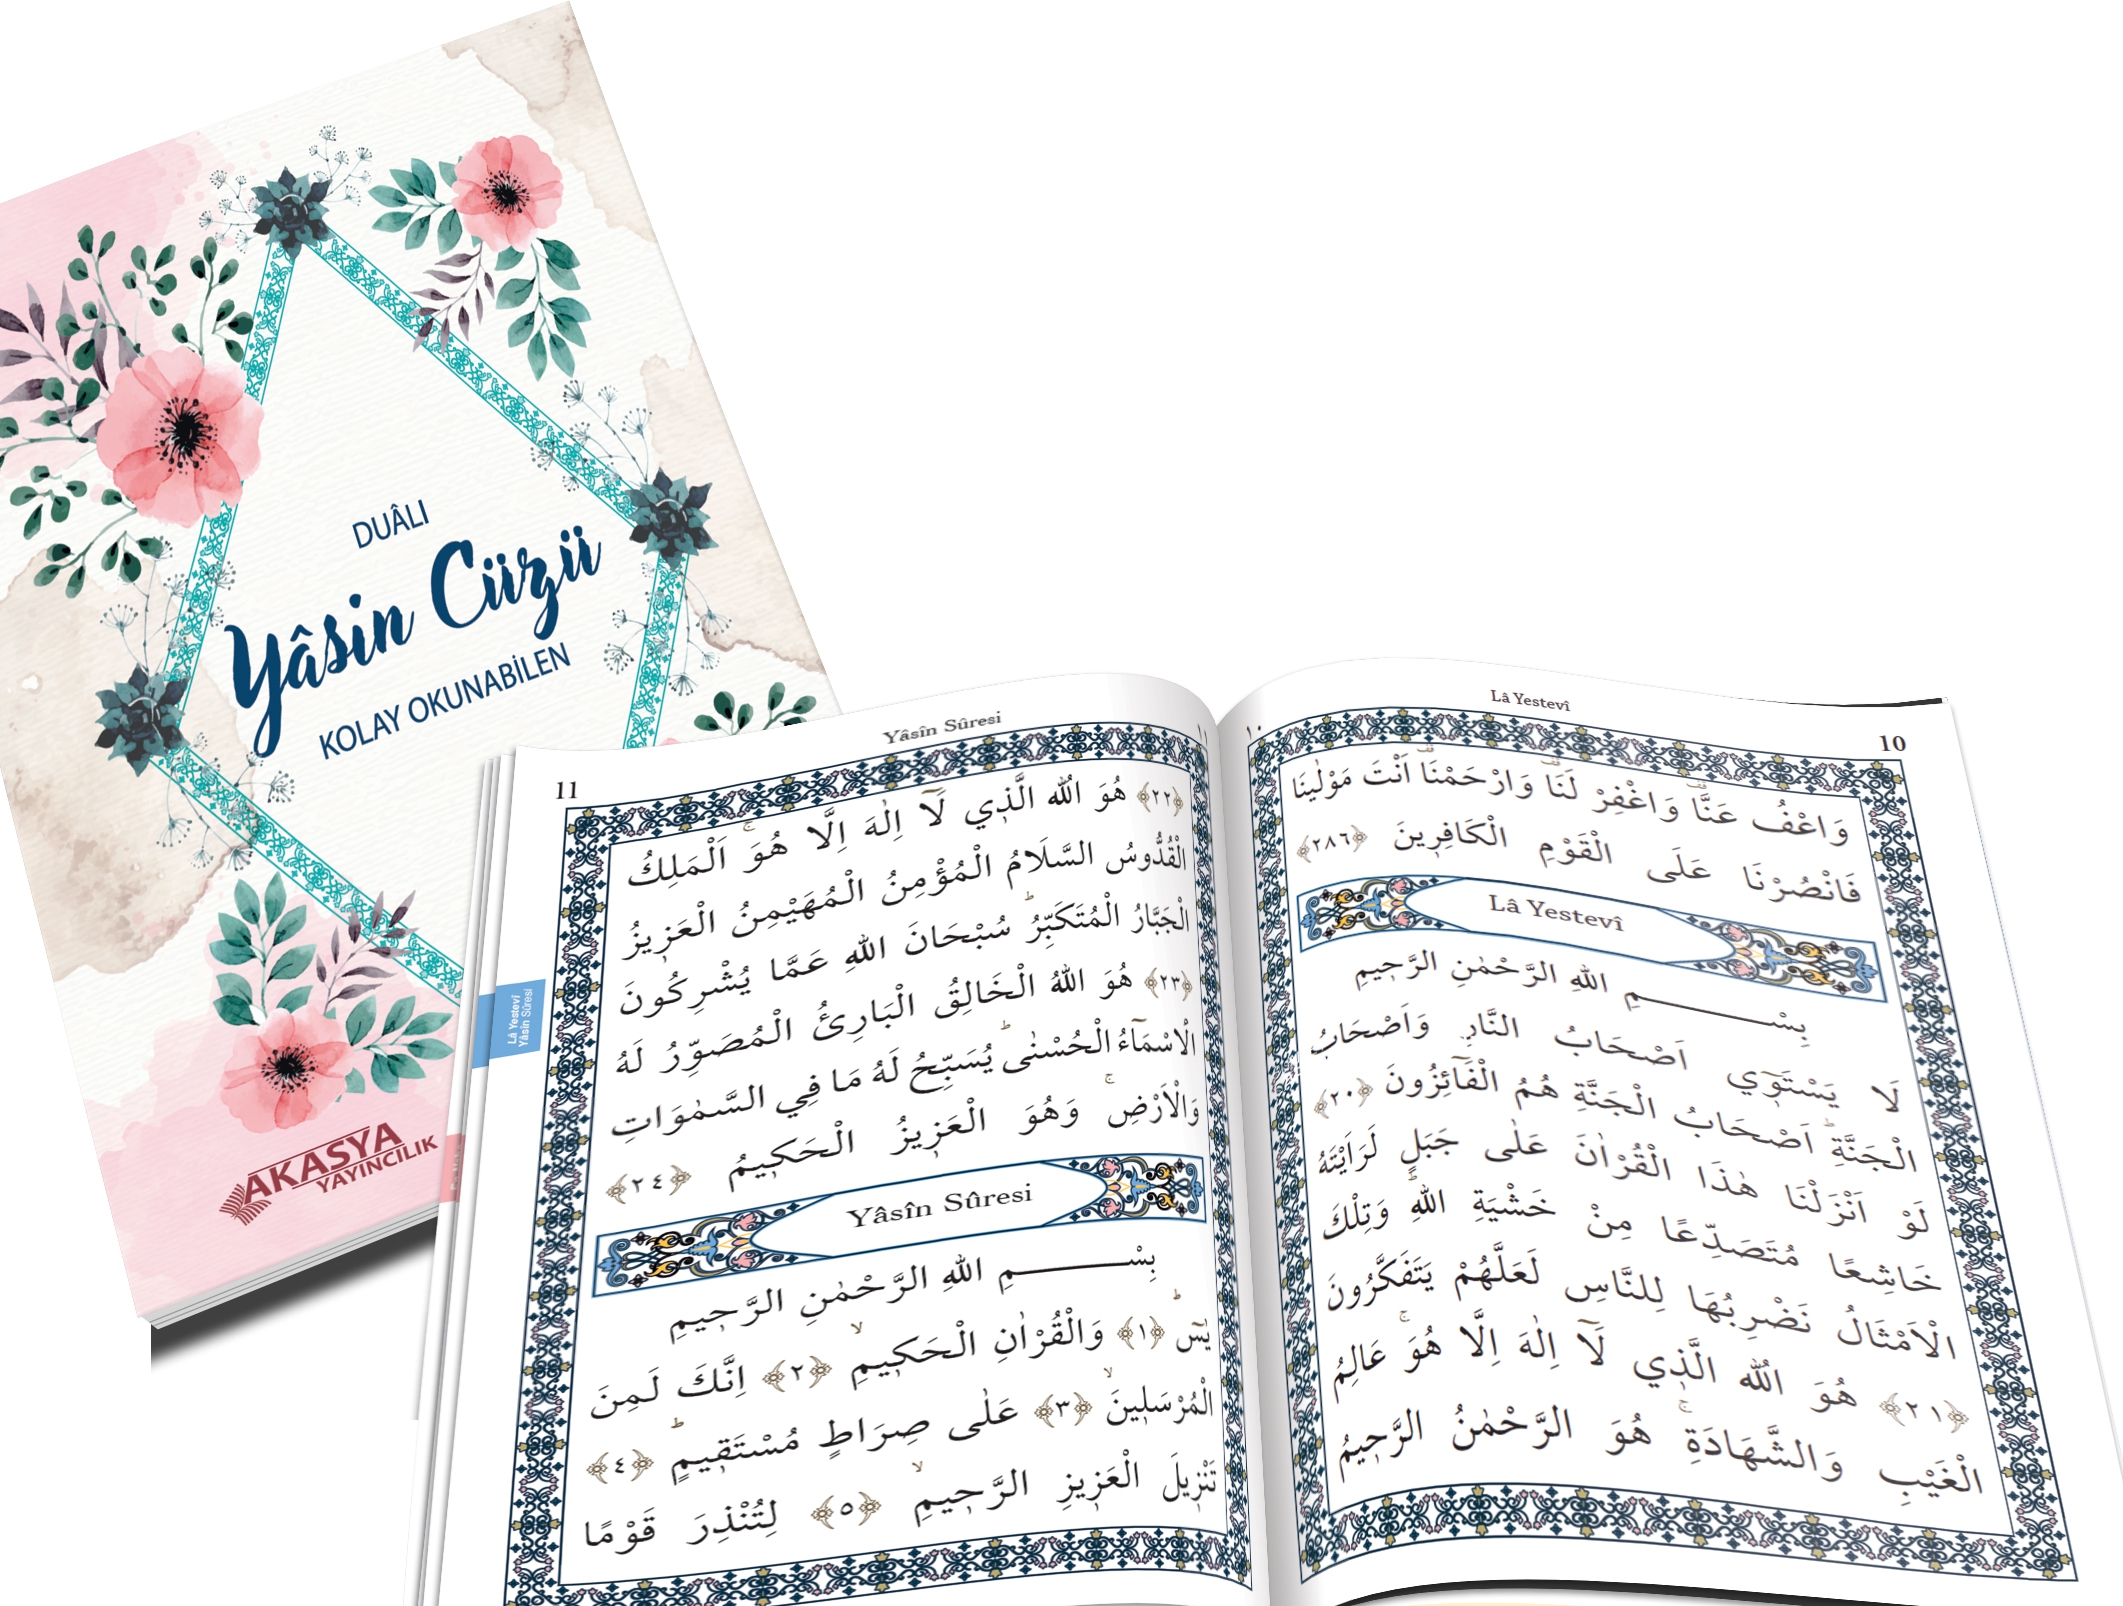 DUÂLI
Yâsin Cüzü
KOLAY OKUNABİLEN
AKASYA
YAYINCILIK
Lâ Yestevî
١٠
10
وَاعْفُ عَنَّا۠ وَاغْفِرْ لَنَا۠ وَارْحَمْنَا۠ اَنْتَ مَوْلٰينَا
فَانْصُرْنَا عَلَى الْقَوْمِ الْكَافِر۪ينَ ﴿٢٨٦﴾
Lâ Yestevî
بِسْمِ اللهِ الرَّحْمٰنِ الرَّح۪يمِ
لَا يَسْتَو۪ٓي اَصْحَابُ النَّارِ وَاَصْحَابُ
الْجَنَّةِۜ اَصْحَابُ الْجَنَّةِ هُمُ الْفَٓائِزُونَ ﴿٢٠﴾
لَوْ اَنْزَلْنَا هٰذَا الْقُرْاٰنَ عَلٰى جَبَلٍ لَرَاَيْتَهُ
خَاشِعًا مُتَصَدِّعًا مِنْ خَشْيَةِ اللهِۜ وَتِلْكَ
الْاَمْثَالُ نَضْرِبُهَا لِلنَّاسِ لَعَلَّهُمْ يَتَفَكَّرُونَ
﴿٢١﴾ هُوَ اللهُ الَّذ۪ي لَٓا اِلٰهَ اِلَّا هُوَۚ عَالِمُ
الْغَيْبِ وَالشَّهَادَةِۚ هُوَ الرَّحْمٰنُ الرَّح۪يمُ
Yâsîn Sûresi
١١
11
﴿٢٢﴾ هُوَ اللهُ الَّذ۪ي لَٓا اِلٰهَ اِلَّا هُوَۚ اَلْمَلِكُ
الْقُدُّوسُ السَّلَامُ الْمُؤْمِنُ الْمُهَيْمِنُ الْعَز۪يزُ
الْجَبَّارُ الْمُتَكَبِّرُۜ سُبْحَانَ اللهِ عَمَّا يُشْرِكُونَ
﴿٢٣﴾ هُوَ اللهُ الْخَالِقُ الْبَارِئُ الْمُصَوِّرُ لَهُ
الْاَسْمَٓاءُ الْحُسْنٰىۜ يُسَبِّحُ لَهُ مَا فِي السَّمٰوَاتِ
وَالْاَرْضِۚ وَهُوَ الْعَز۪يزُ الْحَك۪يمُ ﴿٢٤﴾
Yâsîn Sûresi
بِسْمِ اللهِ الرَّحْمٰنِ الرَّح۪يمِ
يٰسٓۜ ﴿١﴾ وَالْقُرْاٰنِ الْحَك۪يمِۙ ﴿٢﴾ اِنَّكَ لَمِنَ
الْمُرْسَل۪ينَۙ ﴿٣﴾ عَلٰى صِرَاطٍ مُسْتَق۪يمٍۜ ﴿٤﴾
تَنْز۪يلَ الْعَز۪يزِ الرَّح۪يمِۙ ﴿٥﴾ لِتُنْذِرَ قَوْمًا
Lâ Yestevî
Yâsîn Sûresi